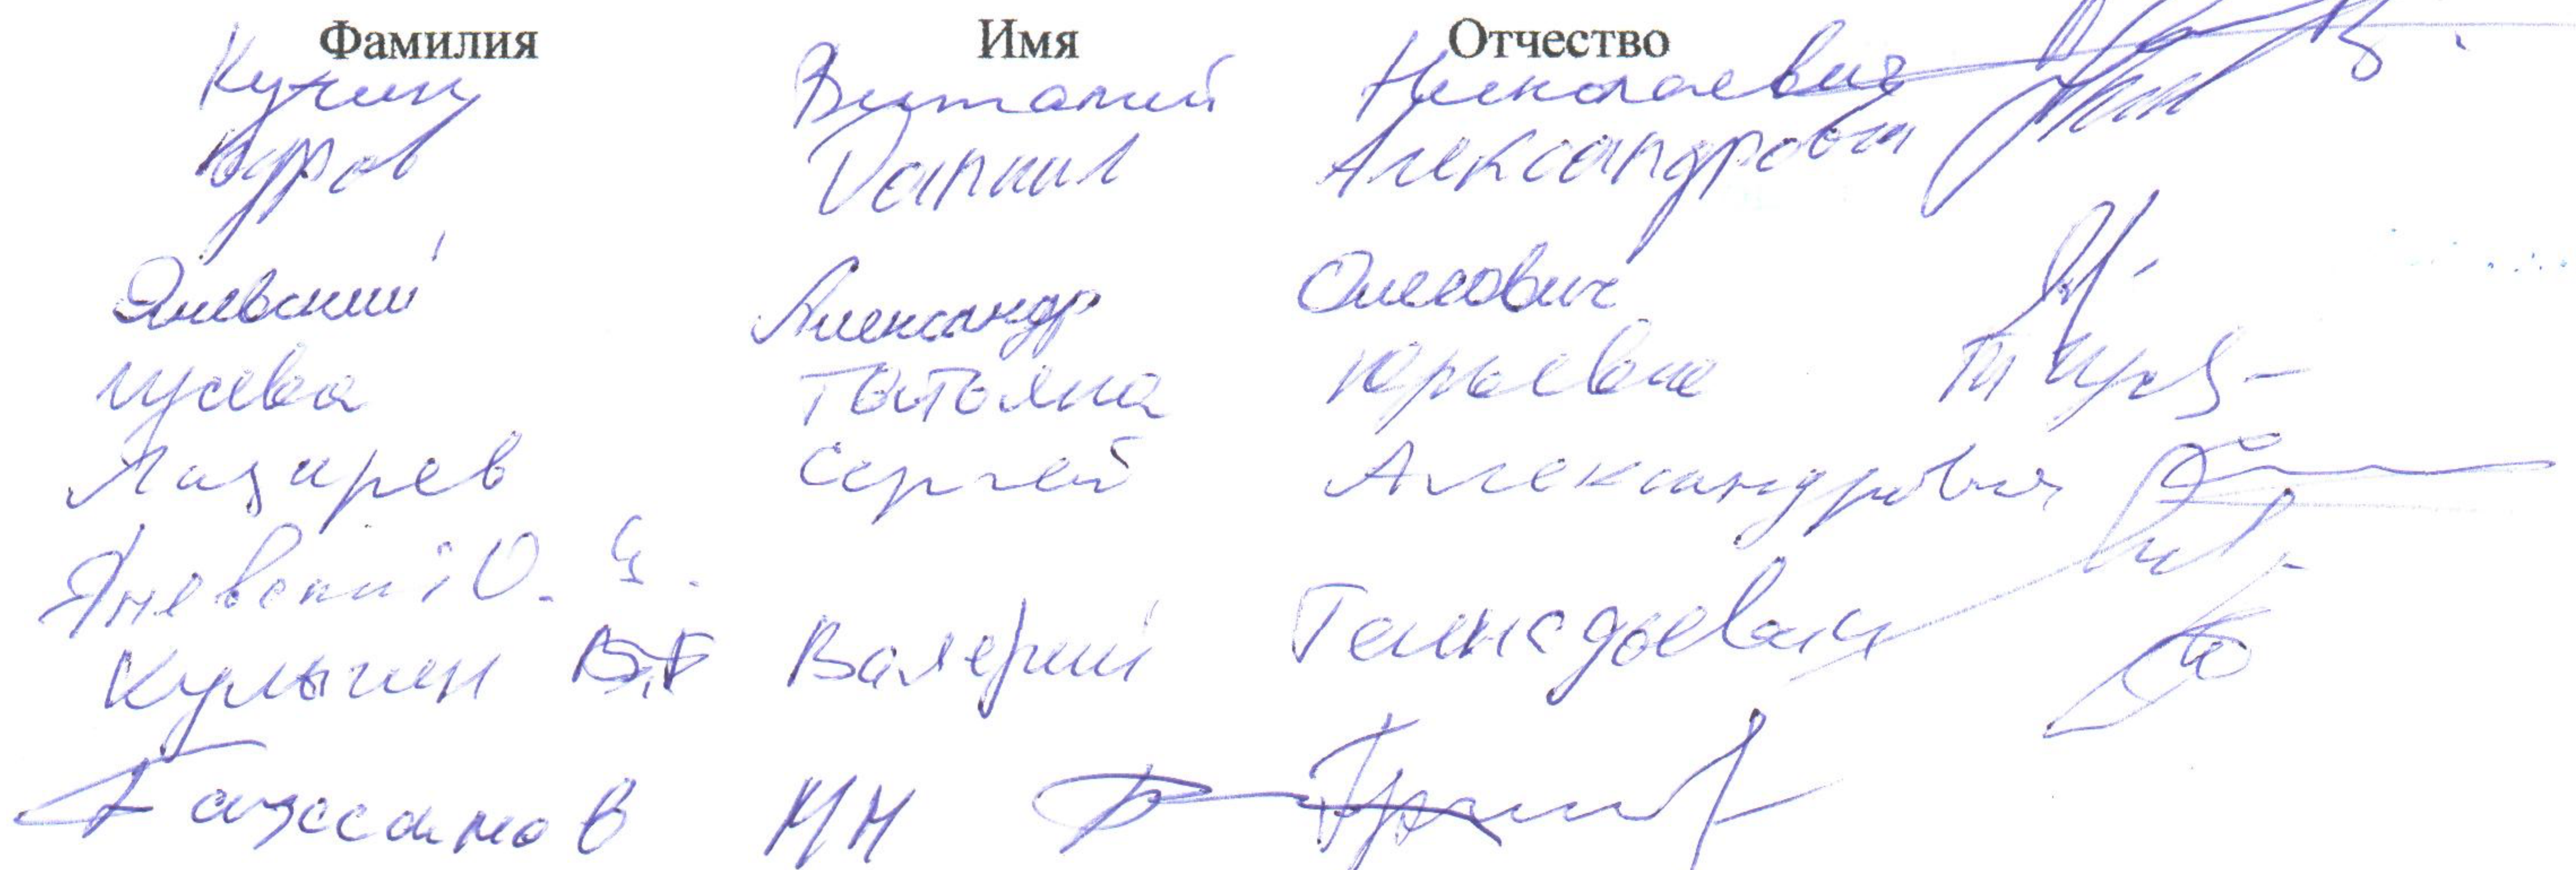 Фамилия Имя Отчество
Кучин Виталий Николаевич
Даниил Александрович
Яневский Александр Олегович
Гусева Татьяна Юрьевна
Лазарев Сергей Александрович
Яневский О.
Кулыгин В.Г Валерий Геннадьевич
М Н